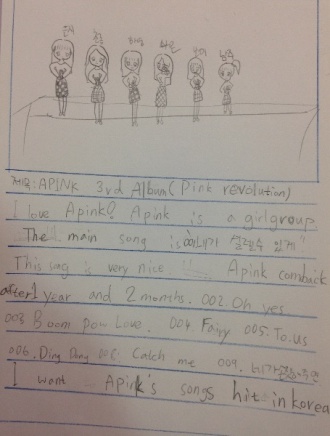 은지 초롱 보미 하영 남주
제목:APINK 3rd Album(Pink revolution)
I love Apink! Apink is a girlgroup
The main song is "내가 설렐 수 있게"
This song is very nice Apink comback
after 1 year and 2 months. 002. Oh yes
003 Boom Pow Love. 004. Fairy 005. To.us
006. Ding Dong Catch me 009.
I want Apink's songs hit in korea